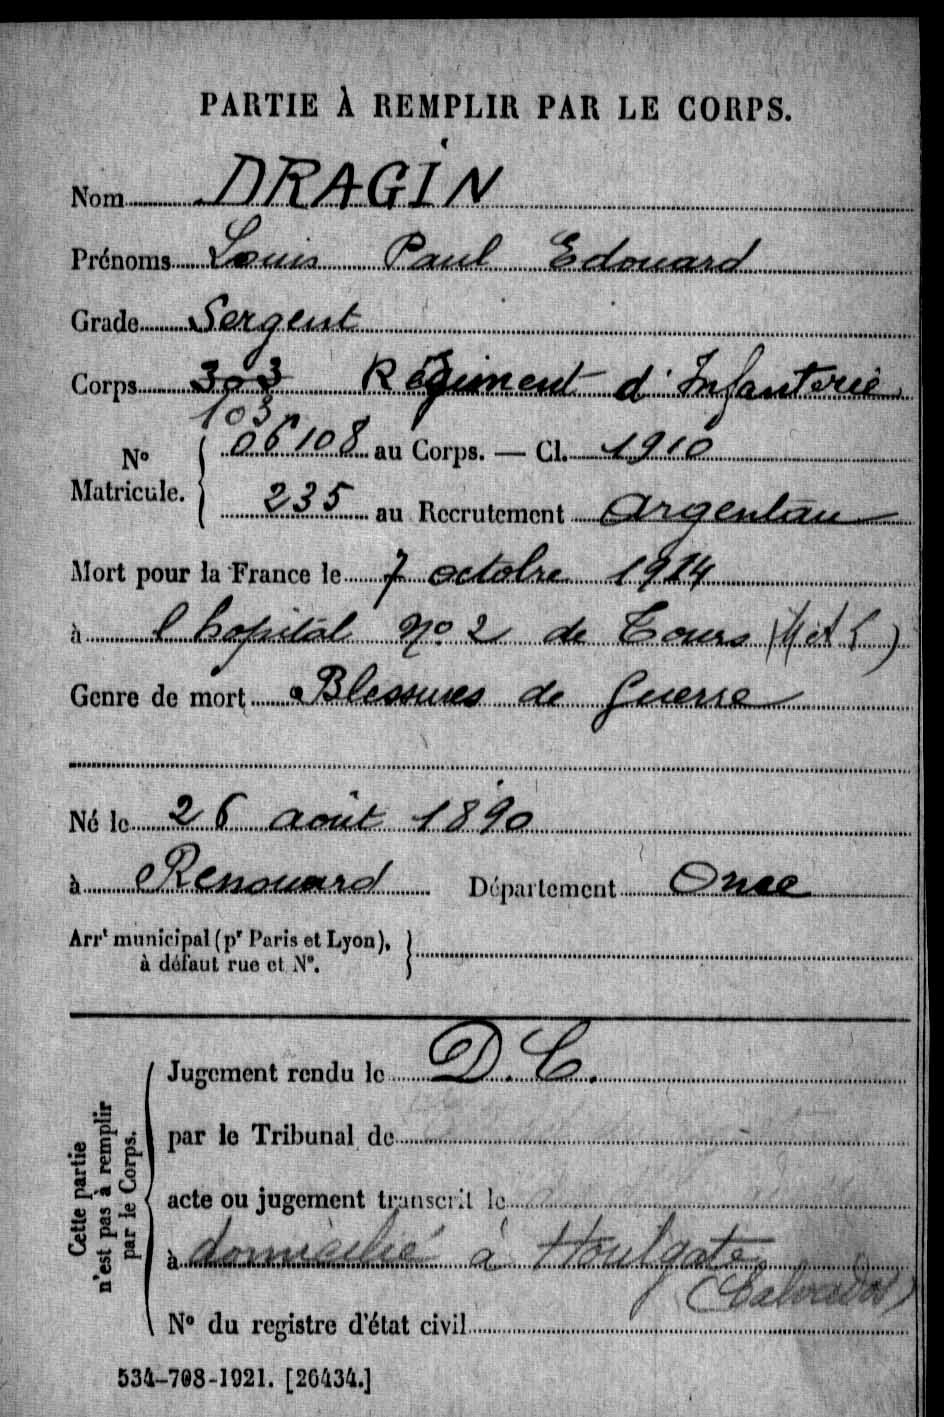 PARTIE À REMPLIR PAR LE CORPS.
Nom DRAGIN
Prénoms Louis Paul Edouard
Grade Sergent
Corps 303 Régiment d'Infanterie
103
N° Matricule. 06108 au Corps. — Cl. 1910
235 au Recrutement Argentan
Mort pour la France le 7 octobre 1914
à l hopital No 2 de Tours
Genre de mort Blessures de Guerre
Né le 26 août 1890
à Renouard Département Orne
Arrt municipal (pr Paris et Lyon), à défaut rue et N°.
Cette partie n'est pas à remplir par le Corps.
Jugement rendu le D. C.
par le Tribunal de
acte ou jugement transcrit le
à domicilié à Houlgate
(Calvados)
N° du registre d'état civil
534-708-1921. [26434.]